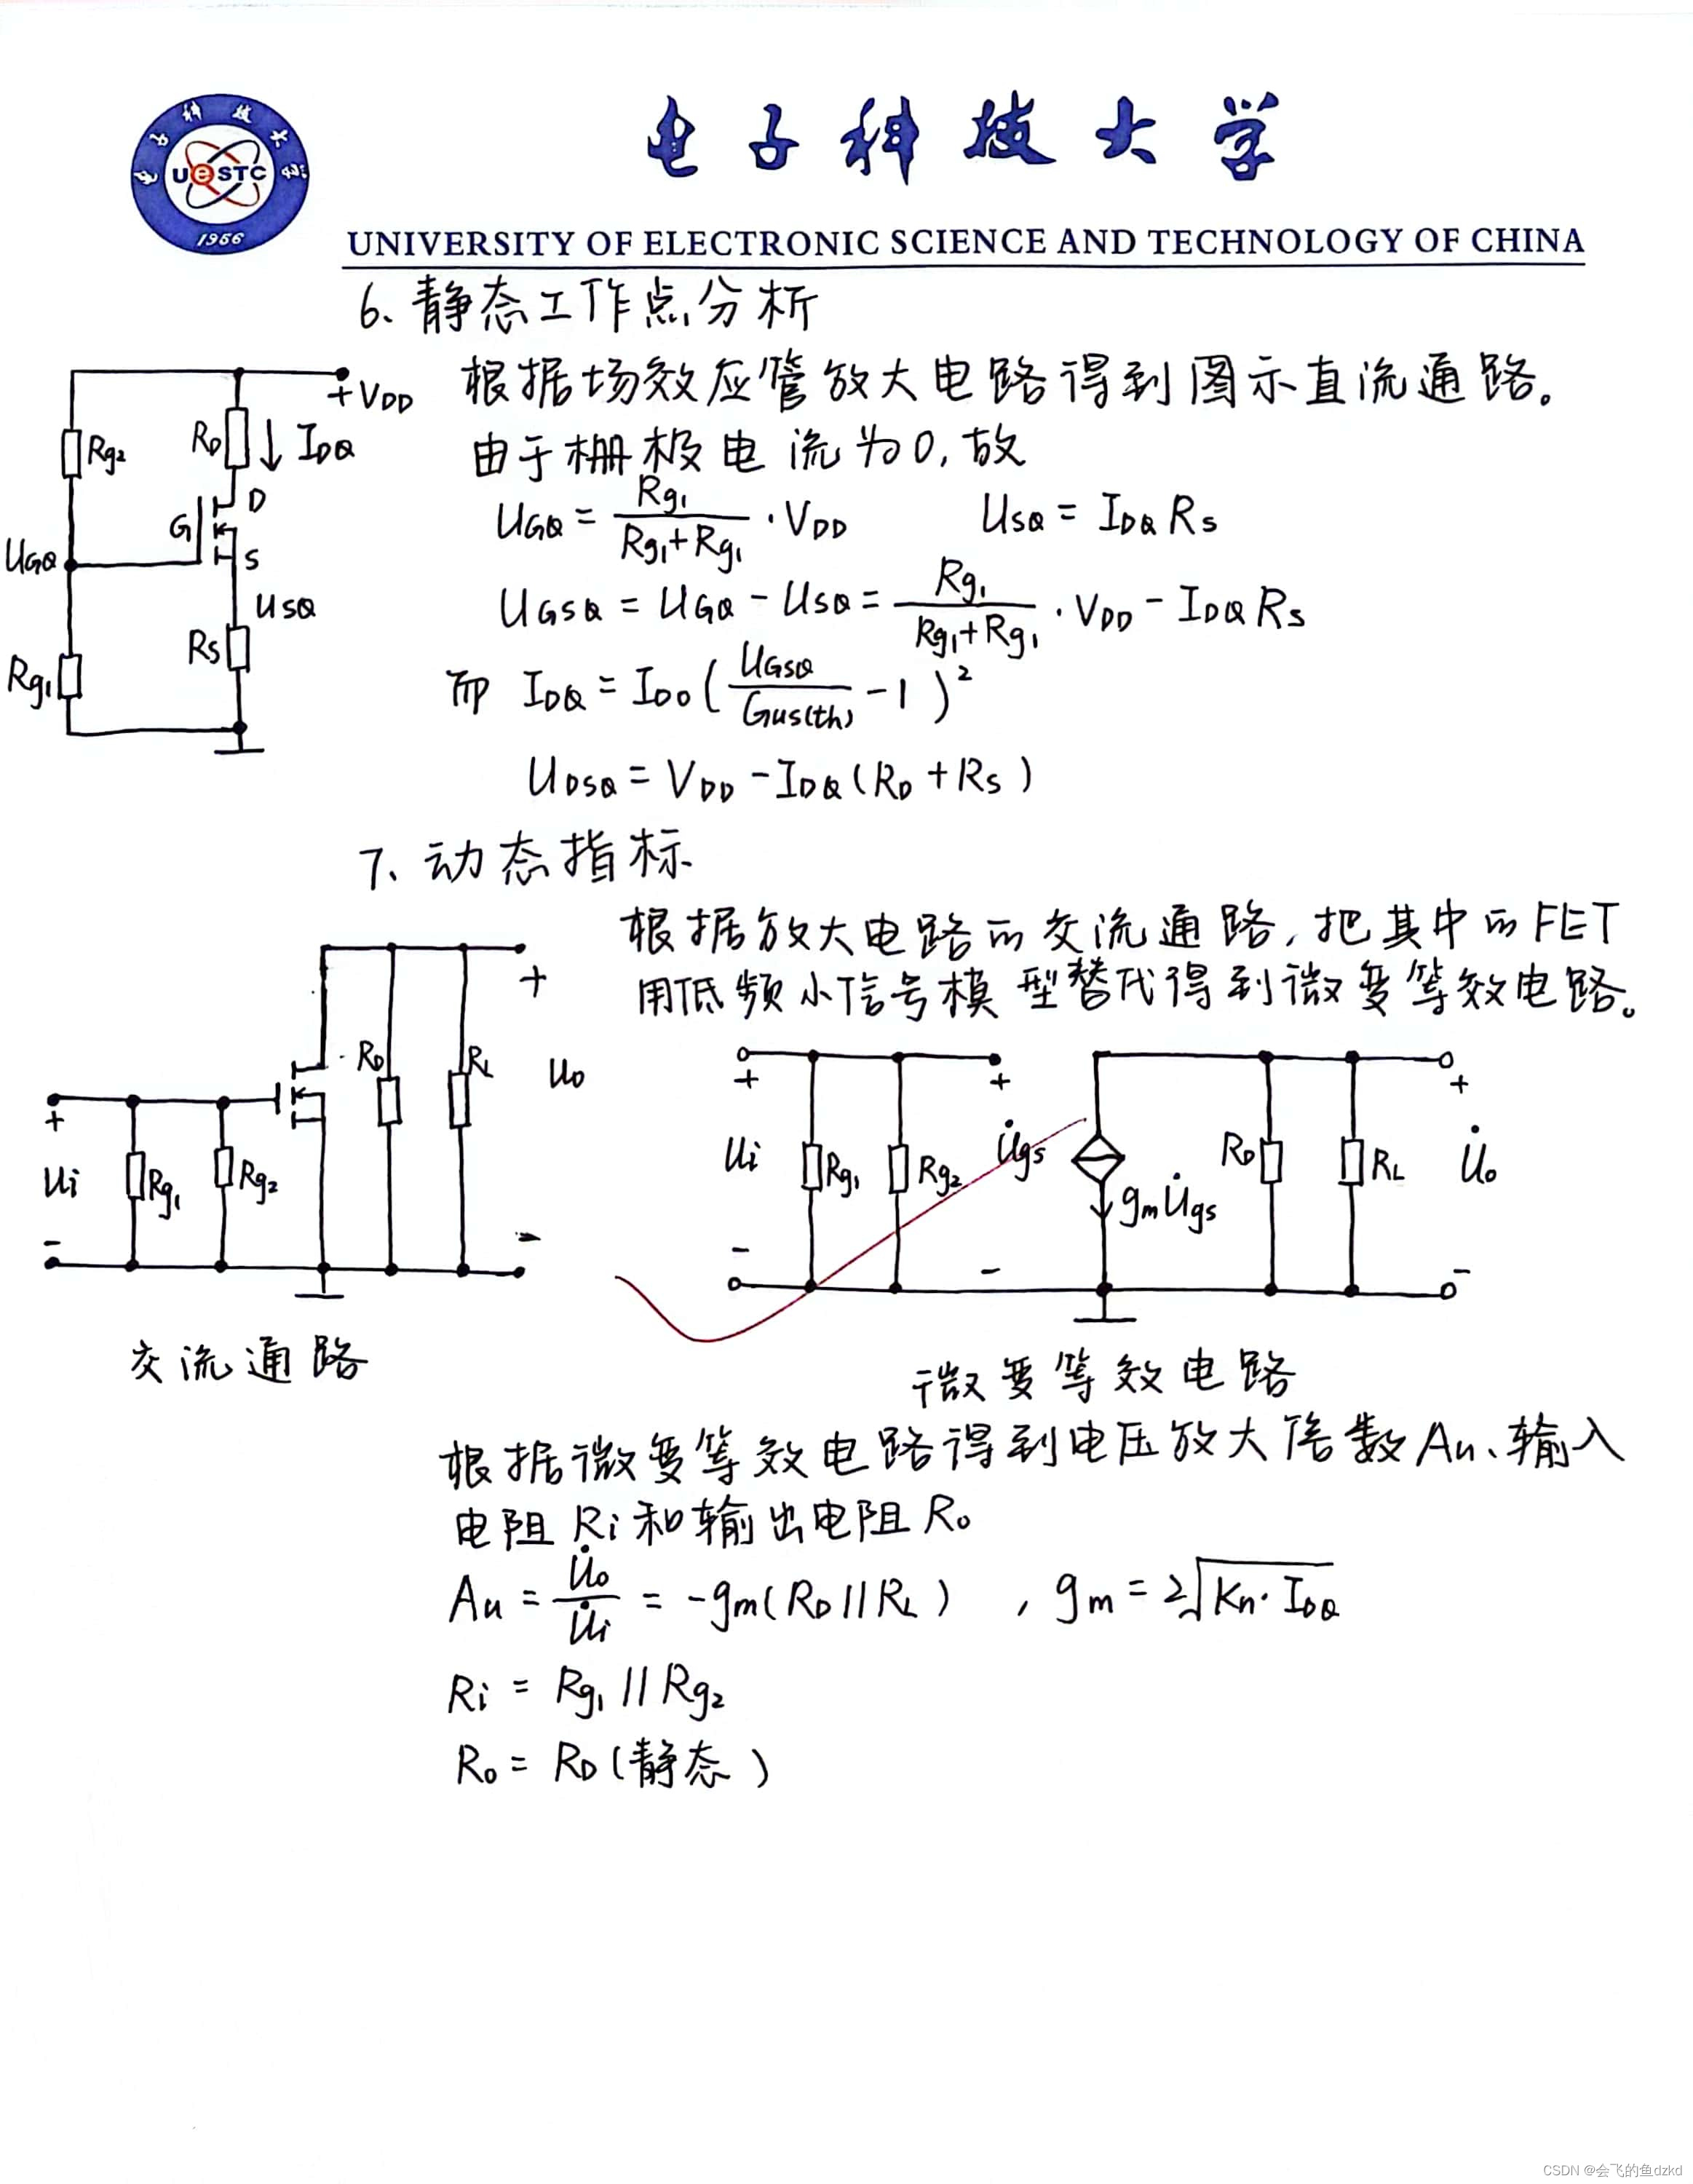 电子科技大学
UeSTC
1956
UNIVERSITY OF ELECTRONIC SCIENCE AND TECHNOLOGY OF CHINA
6、静态工作点分析
根据场效应管放大电路得到图示直流通路。
由于栅极电流为0,故
U_GQ = Rg1/(Rg1+Rg1) · V_DD  U_SQ = I_DQ R_S
U_GSQ = U_GQ - U_SQ = Rg1/(Rg1+Rg1) · V_DD - I_DQ R_S
而 I_DQ = I_DO (U_GSQ/G_us(th) - 1)²
U_DSQ = V_DD - I_DQ (R_D + R_S)
+V_DD
Rg2
R_D
I_DQ
D
G
S
U_GQ
U_SQ
R_S
Rg1
7、动态指标
根据放大电路的交流通路,把其中的FET
用低频小信号模型替代得到微变等效电路。
+
R_D
R_L
Uo
+
Ui
Rg1
Rg2
-
-
交流通路
+
+
+
Ui
Rg1
Rg2
U̇gs
gmU̇gs
R_D
R_L
U̇o
-
-
-
微变等效电路
根据微变等效电路得到电压放大倍数Au、输入
电阻Ri和输出电阻Ro
Au = U̇o/U̇i = -gm(R_D//R_L) , gm = 2√(Kn·I_DQ)
Ri = Rg1//Rg2
Ro = R_D(静态)
CSDN @会飞的鱼dzkd